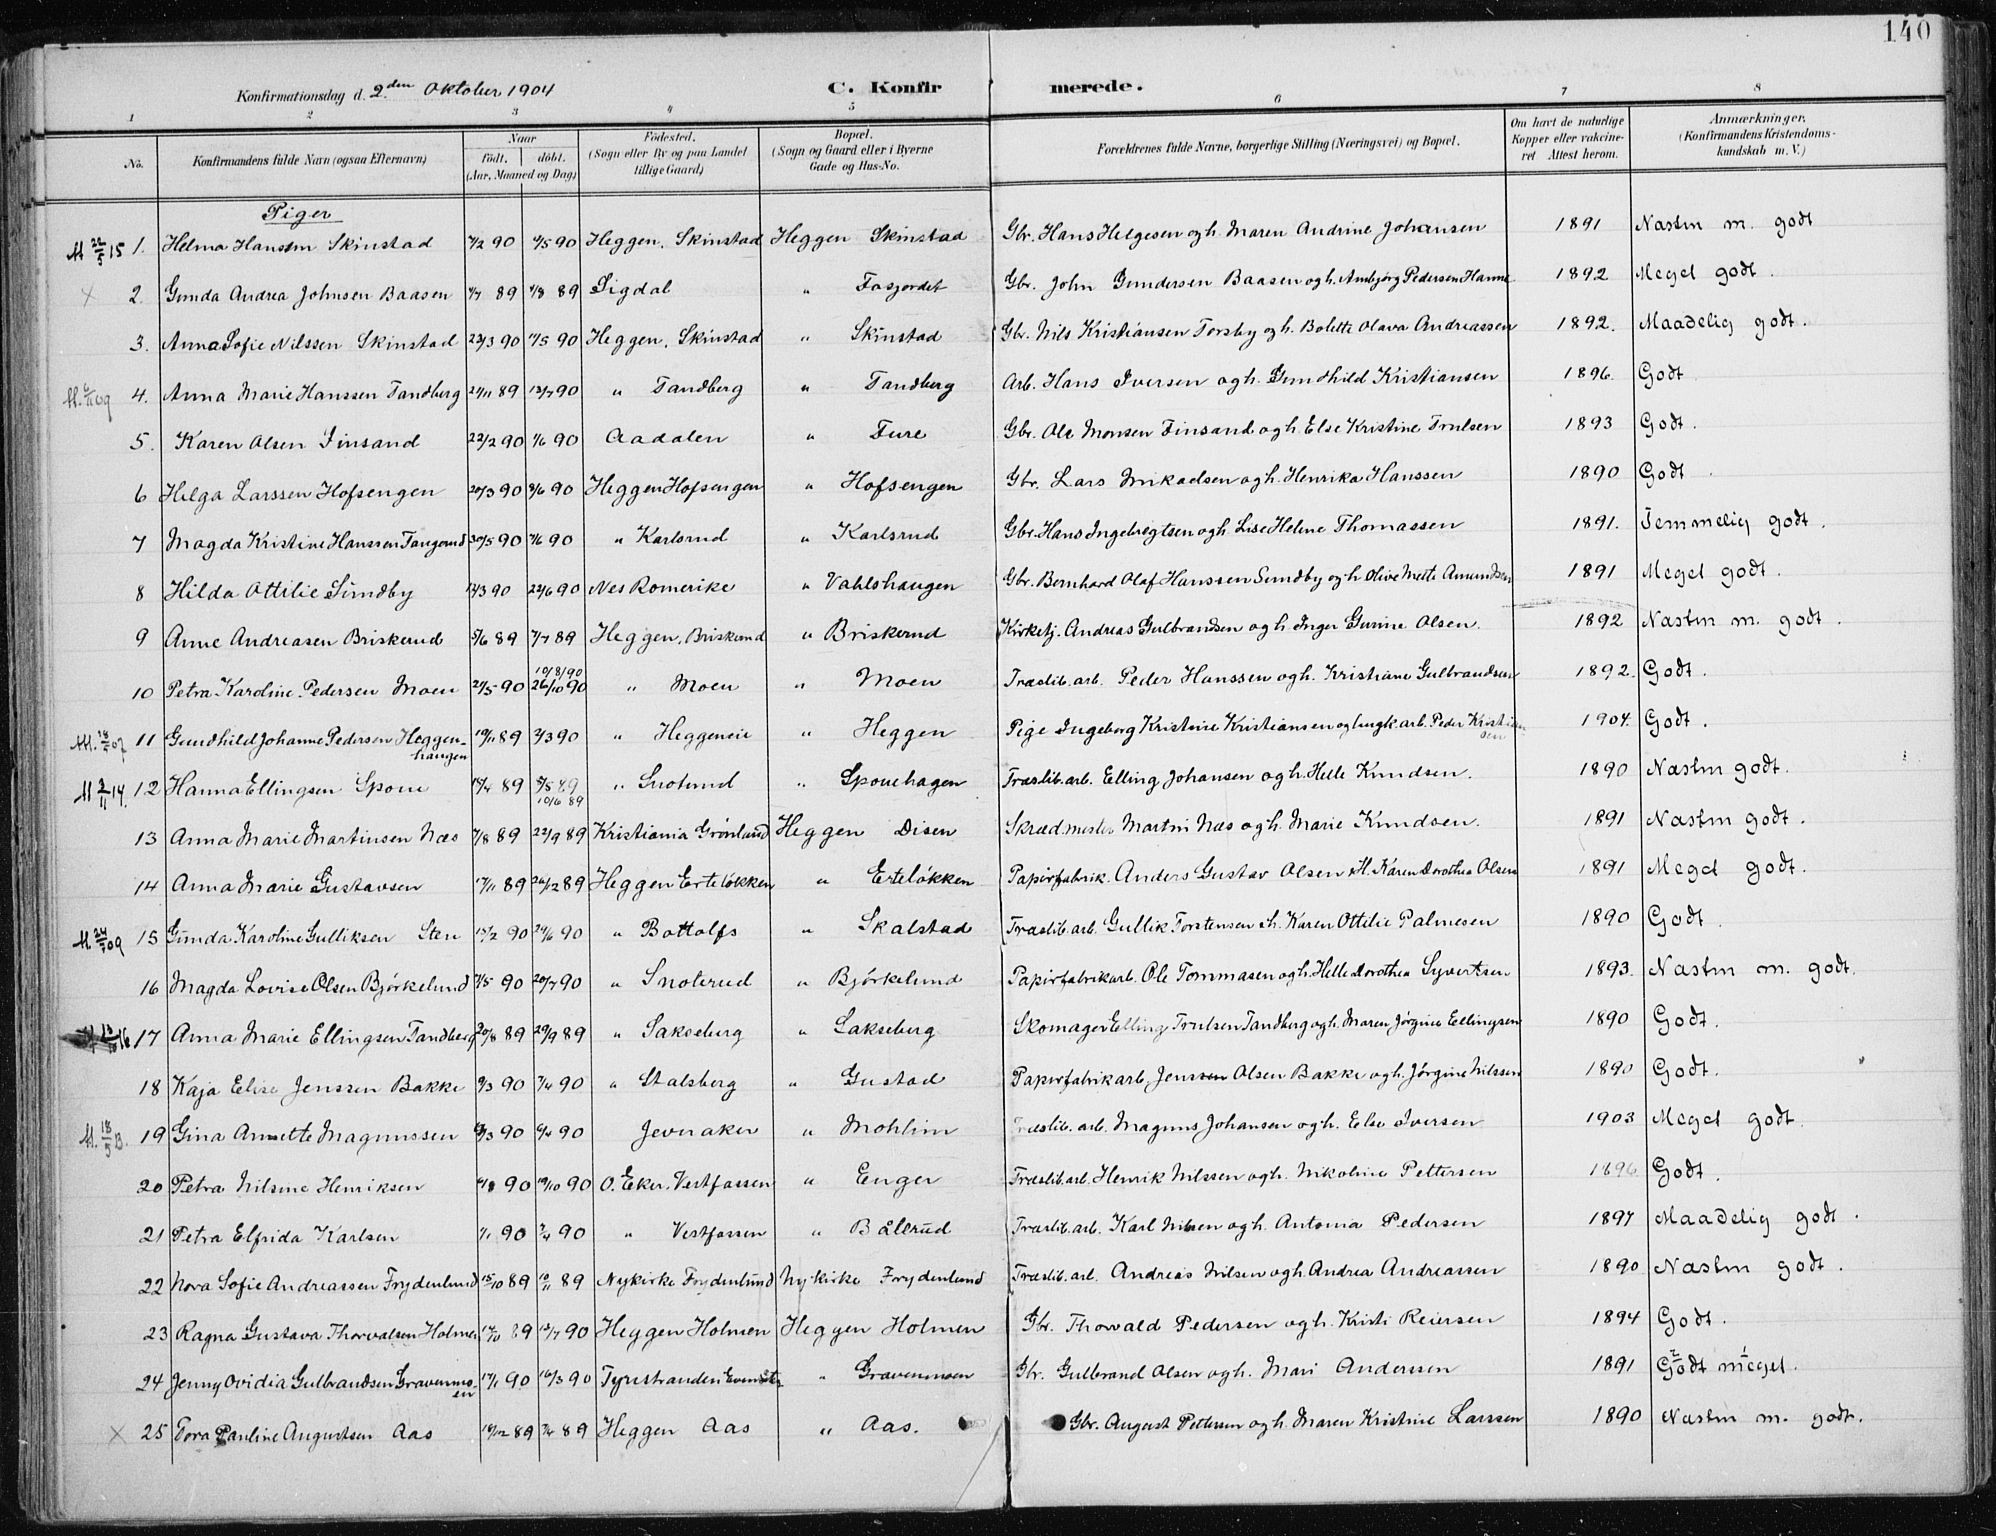 140
Konfirmationsdag d. 2den Oktober 1904 C. Konfirmerede.
1 2 3 4 5 6 7 8
No. Konfirmandens fulde Navn (ogsaa Efternavn) Naar født. døbt. (Aar, Maaned og Dag) Fødested. (Sogn eller By og paa Landet tillige Gaard) Bopæl. (Sogn og Gaard eller i Byerne Gade og Hus-No. Forældrenes fulde Navne, borgerlige Stilling (Næringsvei) og Bopæl. Om havt de naturlige Kopper eller vakcineret Attest herom. Anmærkninger. (Konfirmandens Kristendomskundskab m. V.)
Piger
M 22/5 15 1. Helma Hansen Skinstad 7/2 90 4/5 90 Heggen, Skinstad Heggen Skinstad Gbr. Hans Helgesen og h. Maren Andrine Johansen 1891 Næsten m. godt
2. Gunda Andrea Johnsen Baasen 89 89 Sigdal " Fosjordet Gbr. John Gundersen Baasen og h. Ambjørg Pedersen Hanne 1892 Meget godt.
3. Anna Sofie Nilssen Skinstad 23/3 90 11/5 90 Heggen, Skinstad " Skinstad Gbr. Nils Kristiansen Torsby og h. Bolette Olava Andreassen 1892. Maadelig godt.
M. 6/11 09 4. Anna Marie Hanssen Tandberg 24/11 89 13/7 90 " Tandberg " Tandberg Arb. Hans Iversen og h. Gundhild Kristiansen 1896. Godt
5. Karen Olsen Finsand 22/2 90 1/6 90 Aadalen " Fure Gbr. Ole Monsen Finsand og h. Else Kristine Trulsen 1893 Godt.
6 Helga Larssen Hofsengen 20/3 90 8/6 90 Heggen Hofsengen " Hofsengen Gbr. Lars Mikaelsen og h. Henrika Hanssen 1890 Godt.
7 Magda Kristine Hanssen Tangerud 30/5 90 7/6 90 " Karlsrud " Karlsrud Gbr. Hans Ingebregtsen og h. Lise Helene Thomassen 1891. Temmelig godt.
8 Hilda Ottilie Sundby 14/3 90 22/6 90 Nes Romerike " Vahlshaugen Gbr. Bernhard Olaf Hanssen Sundby og h. Olive Mette Amundsen 1891 Meget godt.
9 Anne Andreasen Briskerud 5/6 89 7/7 89 Heggen, Briskerud " Briskerud Kirketj. Andreas Gulbrandsen og h. Inger Gurine Olsen. 1892 Næsten m. godt.
10 Petra Karoline Pedersen Moen 21/5 90 10/8/90 26/10 90 " Moen " Moen Træslib. arb. Peder Hanssen og h. Kristiane Gulbrandsen 1892. Godt.
M. 18/5 07 11 Gundhild Johanne Pedersen Heggenhaugen 19/11 89 2/3 90 " Heggeneie " Heggen Pige Ingeborg Kristine Kristiansen og ungk. arb. Peder Kristiansen 1904. Godt.
M 2/11 14. 12 Hanna Ellingsen Spone 15/4 89 5/5 89 10/6 89 " Snoterud " Sponehagen Træslib. arb. Elling Johansen og h. Helle Knudsen. 1890 Næsten godt.
13 Anna Marie Martinsen Næs 7/8 89 22/9 89 Kristiania Grønland Heggen Disen Skræd.mester Martin Næs og h. Marie Knudsen. 1891 Næsten godt.
14 Anna Marie Gustavsen 17/11 89 26/12 89 Heggen Erteløkken " Erteløkken Papirfabrik. Anders Gustav Olsen H. Karen Dorothea Olsen 1891 Meget godt.
M. 24/5 09 15 Gunda Karoline Gulliksen Sten 15/2 90 24/6 90 " Bottolfs " Skalstad Træslib. arb. Gullik Torstensen h. Karen Ottilie Palmesen 1890 Godt.
16 Magda Lovise Olsen Bjørkelund 7/5 90 20/7 90 " Snoterud " Bjørkelund Papirfabrikarb. Ole Tommasen og h. Helle Dorothea Syvertsen 1893. Næsten m. godt.
17 Anna Marie Ellingsen Tandberg 20/8 89 29/9 89 " Sakseberg " Sakseberg Skomager Elling Trulsen Tandberg og h. Maren Jørgine Ellingsen 1890 Godt.
18 Kaja Elise Jenssen Bakke 9/3 90 7/4 90 " Stalsberg " Gustad Papirfabrikarb. Jens Olsen Bakke og h. Jørgine Nilssen 1890 Godt.
M. 18/5 13. 19 Gina Annette Magnussen 3 90 6/4 90 Jevnaker " Mohlim Træslib. arb. Magnus Johansen og h. Else Iversen 1903 Meget godt.
20 Petra Nilsine Henriksen 90 19/10 90 O. Eker, Vestfossen " Enger Træslib. arb. Henrik Nilssen og h. Nikoline Pettersen 1896 Godt.
21 Petra Elfrida Karlsen 90 7/4 90 " Vestfossen " Ballerud Træslib. arb. Karl Nilsen og h. Antonia Pedersen 1897 Maadelig godt.
22 Nora Sofie Andreassen Frydenlund 15/10 89 10/11 89 Nykirke Frydenlund Nykirke Frydenlund Træslib. arb. Andreas Nilsen og h. Andrea Andreassen 1890 Næsten godt.
23 Ragna Gustava Thorvalsen Holmen 89 13/7 90 Heggen Holmen Heggen Holmen Gbr. Thorvald Pedersen og h. Kristi Reiersen 1894 Godt.
24 Jenny Ovidia Gulbrandsen Gravermoen 17/1 90 16/3 90 Tyristranden " Gravermoen Gbr. Gulbrand Olsen og h. Mari Andersen 1891 Godt meget.
25 Tora Pauline Augustsen Aas 19/12 89 7/4 89 Heggen Aas " Aas. Gbr. August Pettersen og h. Maren Kristine Larssen 1890 Næsten m. godt.